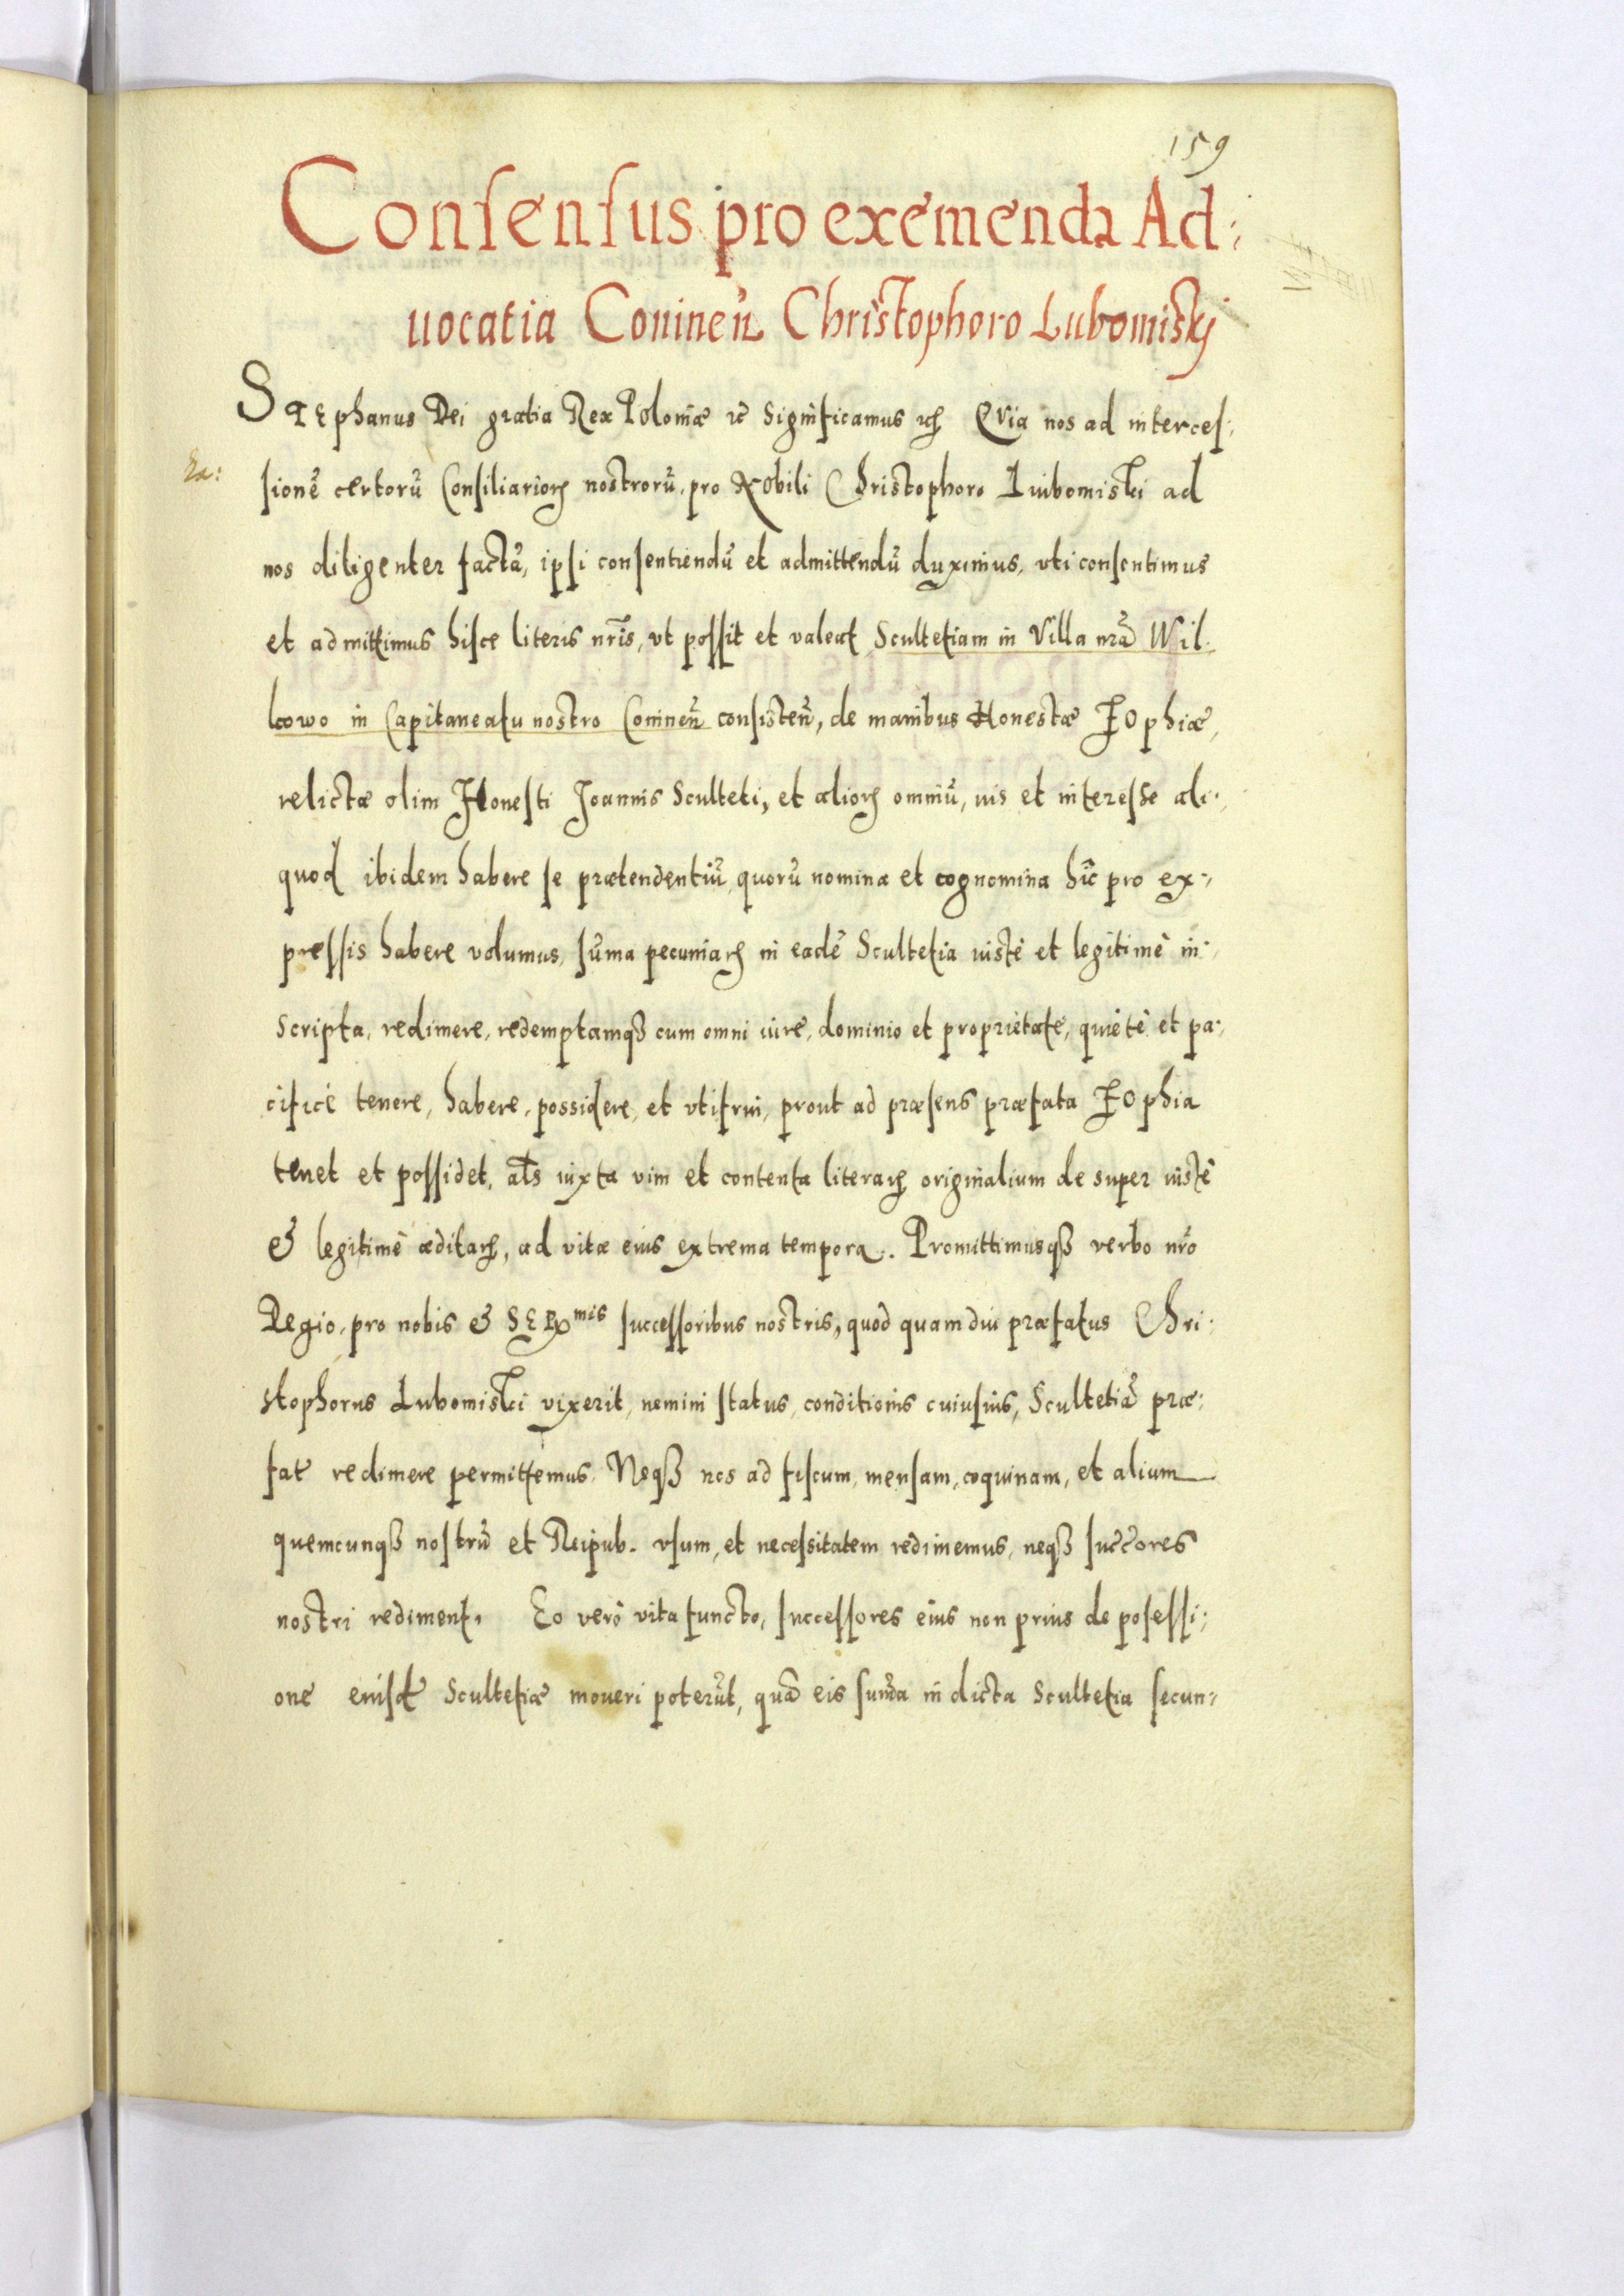 159
Consensus pro exemenda Ad:
uocatia Coninen̄ Christophoro Lubomiskj
STEphanus Dei gratia Rex Poloniæ etc̄ Significamus etc̄ QVia nos ad interces:
Ex:
sionē certorū Consiliarioꝝ nostrorū, pro Nobili Christophoro Luibomiski ad
nos diligenter factā, ipsi consentiendū et admittendū duximus, vti consentimus
et admittimus hisce literis nr̄is, vt possit et valeat Scultetiam in Villa nrā Wil:
kowo in Capitaneatu nostro Coninen̄ consisten̄, de manibus Honestæ ZOphiæ,
relictæ olim Honesti Joannis Sculteti, et alioꝝ omniū, ius et interesse ali:
quod ibidem habere se prætendentiū, quorū nomina et cognomina hic̄ pro ex:
pressis habere volumus, sūma pecuniaꝝ in eadē Scultetia iustè et legitimè in:
scripta, redimere, redemptamqꝫ cum omni iure, dominio et proprietate, quiètè et pa:
cificè tenere, habere, possidere, et vtifrui, prout ad præsens præfata ZOphia
tenet et possidet, al̄s iuxta vim et contenta literaꝝ originalium de super iustè
& legitimè æditaꝝ, ad vitæ eius extrema tempora. Promittimusqꝫ verbo nr̄o
Regio, pro nobis & SERmis successoribus nostris, quod quamdiu præfatus Chri:
stophorus Lubomiski vixerit, nemini status, conditionis cuiusuis, Scultetiā præ:
fat̄ redimere permittemus. Neqꝫ nos ad fiscum, mensam, coquinam, et alium
quemcunqꝫ nostrū et Reipub. vsum, et necessitatem redimemus, neqꝫ succ̄ores
nostri rediment. Eo verò vita functo, successores eius non prius de posessi:
one eiusd̄ Scultetiæ moueri poterūt, quā eis sum̄a in dicta Scultetia secun: